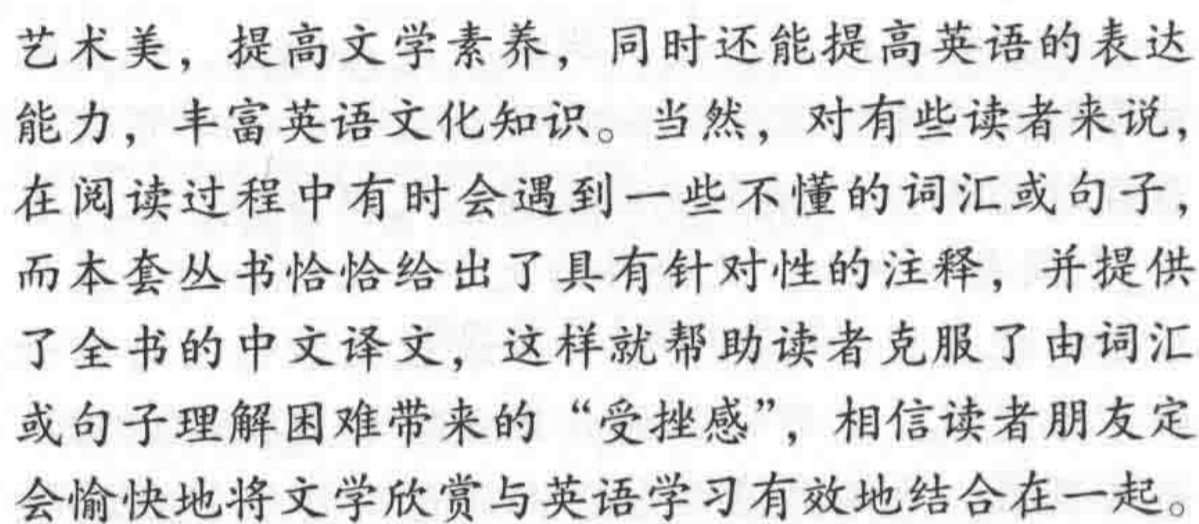 艺术美，提高文学素养，同时还能提高英语的表达
能力，丰富英语文化知识。当然，对有些读者来说，
在阅读过程中有时会遇到一些不懂的词汇或句子，
而本套丛书恰恰给出了具有针对性的注释，并提供
了全书的中文译文，这样就帮助读者克服了由词汇
或句子理解困难带来的“受挫感”，相信读者朋友定
会愉快地将文学欣赏与英语学习有效地结合在一起。